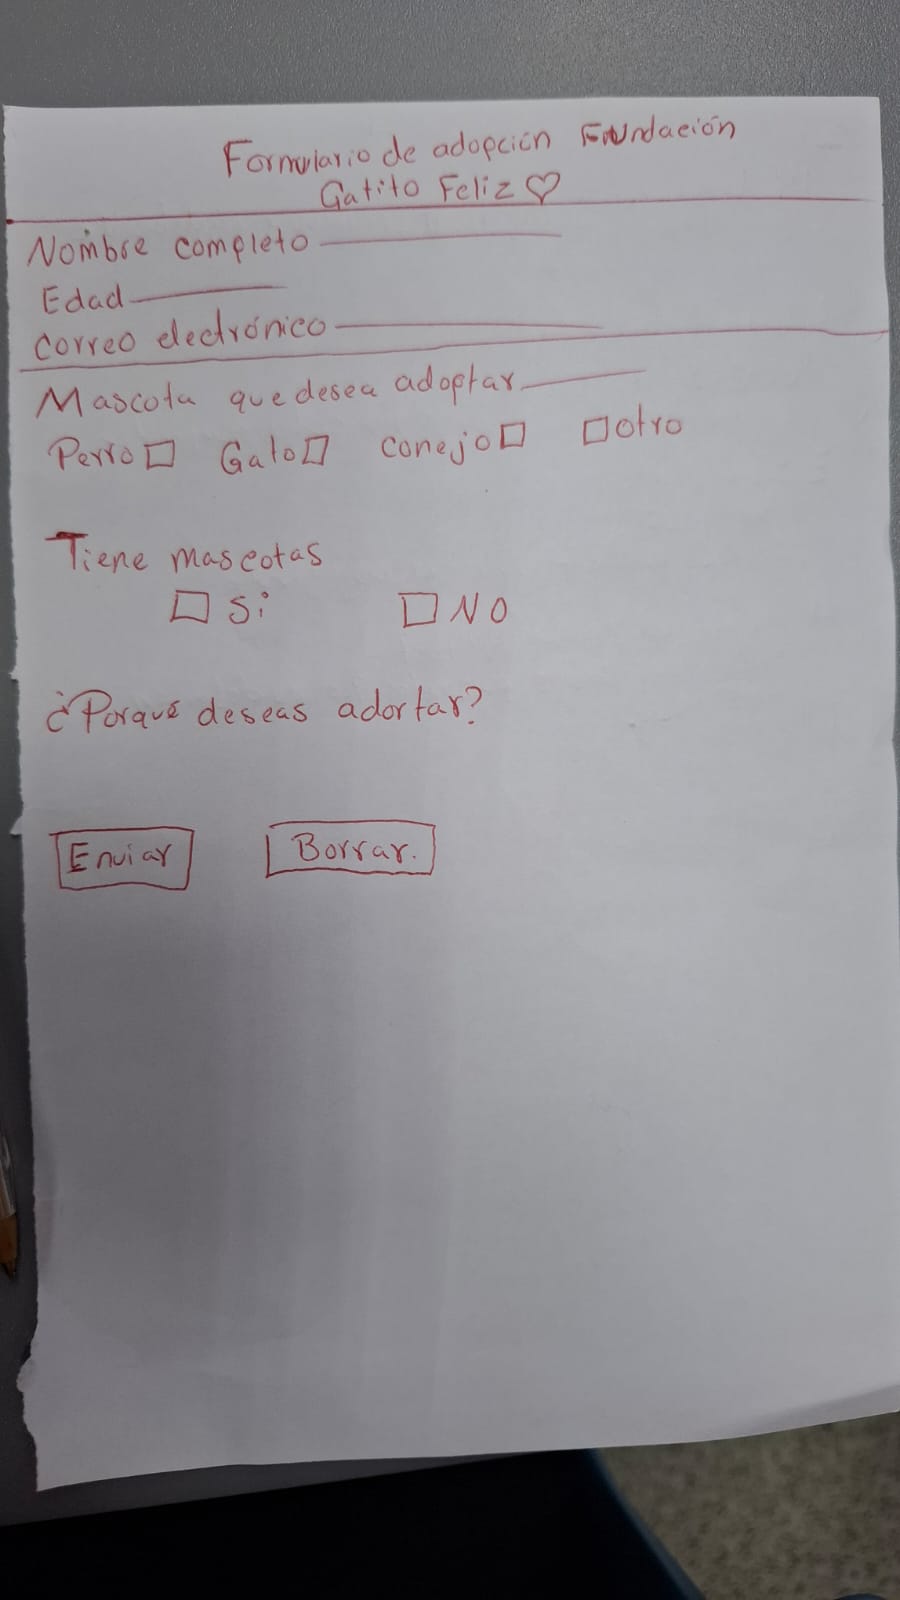 Formulario de adopción Fundación
Gatito Feliz ♡
Nombre completo
Edad
Correo electrónico
Mascota que desea adoptar
Perro □ Gato □ Conejo □ □ otro
Tiene mascotas
□ Si □ NO
¿Porqué deseas adortar?
Enviar Borrar.